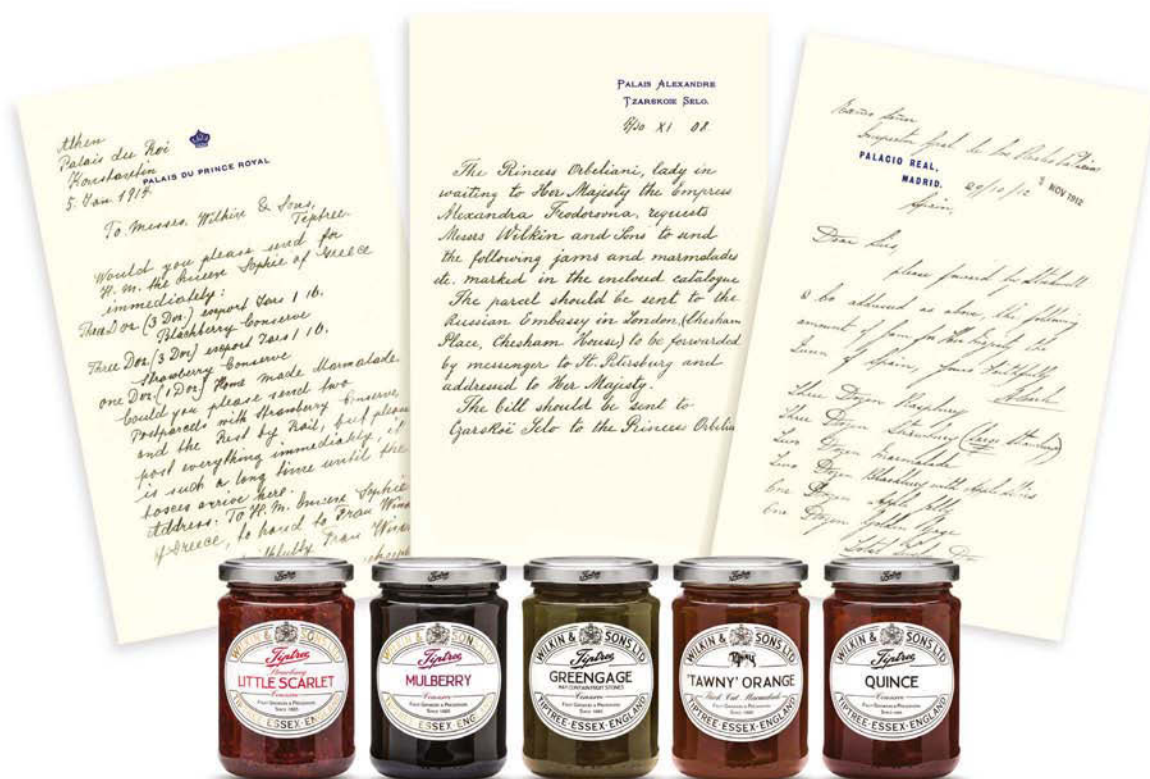 Athen
Palais du Roi
Konstantin
5. Jan. 1914
PALAIS DU PRINCE ROYAL
To Messrs. Wilkin & Sons,
Tiptree
Would you please send for
H. M. the Queene Sophie of Greece
immediately:
Three Doz (3 Doz.) export Jars 1 lb.
Blackberry Conserve
Three Doz. (3 Doz) export Jars 1 lb.
Strawberry Conserve
one Doz. (1 Doz) Home made Marmalade.
Could you please send two
Postparcels with Strawberry Conserve,
and the Rest by Rail, but please
post everything immediately, it
is such a long time until the
boxes arrive here.
Address: To H. M. Queene Sophie
of Greece, to hand to Frau
Frau
PALAIS ALEXANDRE
TZARSKOIE SELO.
XI 08
The Princess Orbeliani, lady in
waiting to Her Majesty the Empress
Alexandra Feodorovna, requests
Messrs Wilkin and Sons to send
the following jams and marmalades
etc. marked in the enclosed catalogue
The parcel should be sent to the
Russian Embassy in London, (Chesham
Place, Chesham House,) to be forwarded
by messenger to St. Petersburg and
addressed to Her Majesty.
The bill should be sent to
Czarskoï Selo to the Princess Orbelia
PALACIO REAL,
MADRID.
29/10/12
NOV 1912
Spain,
Dear Sirs,
please forward
to be addressed as above, the following
amount of jam for the
Queen of Spain, yours faithfully
Three Dozen Raspberry
Three Dozen Strawberry (
Two Dozen Marmalade
Two Dozen Blackberry with Apple
One Dozen Apple Jelly
One Dozen Golden
Tiptree
WILKIN & SONS LTD
Tiptree
Strawberry
LITTLE SCARLET
Conserve
FRUIT GROWERS & PRESERVERS
SINCE 1885
TIPTREE · ESSEX · ENGLAND
Tiptree
WILKIN & SONS LTD
Tiptree
MULBERRY
Conserve
FRUIT GROWERS & PRESERVERS
SINCE 1885
TIPTREE · ESSEX · ENGLAND
Tiptree
WILKIN & SONS LTD
Tiptree
GREENGAGE
MAY CONTAIN FRUIT STONES
Conserve
FRUIT GROWERS & PRESERVERS
SINCE 1885
TIPTREE · ESSEX · ENGLAND
Tiptree
WILKIN & SONS LTD
'TAWNY' ORANGE
Thick Cut Marmalade
FRUIT GROWERS & PRESERVERS
SINCE 1885
TIPTREE · ESSEX · ENGLAND
Tiptree
WILKIN & SONS LTD
Tiptree
QUINCE
Conserve
FRUIT GROWERS & PRESERVERS
SINCE 1885
TIPTREE · ESSEX · ENGLAND